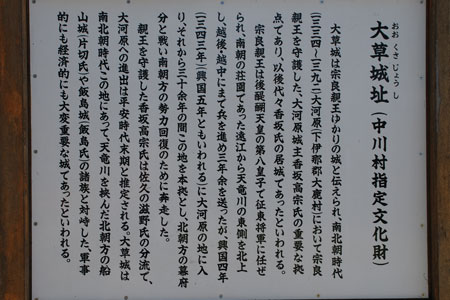 大草城址(中川村指定文化財)
おおくさじょうし
大草城は宗良親王ゆかりの城と伝えられ、南北朝時代
(一三三四〜一三九二)大河原(下伊那郡大鹿村)において宗良
親王を守護した、大河原城主香坂高宗氏の重要な拠
点であり、以後代々香坂氏の居城であったといわれる。
宗良親王は後醍醐天皇の第八皇子で征東将軍に任ぜ
られ、南朝の荘園であった遠江から天竜川の東側を北上
し、越後・越中にまで兵を進め三年余を送ったが、興国四年
(一三四三年)(興国五年ともいわれる)に大河原の地に入
り、それから三十余年の間この地を本拠とし、北朝方の幕府
分と戦い南朝方の勢力回復のために奔走した。
親王を守護した香坂高宗氏は佐久の滋野氏の分流で、
大河原への進出は平安時代末期と推定される。大草城は
南北朝時代この地にあって、天竜川を挟んだ北朝方の船
山城(片切氏)や飯島城(飯島氏)の諸族と対峙した、軍事
的にも経済的にも大変重要な城であったといわれる。